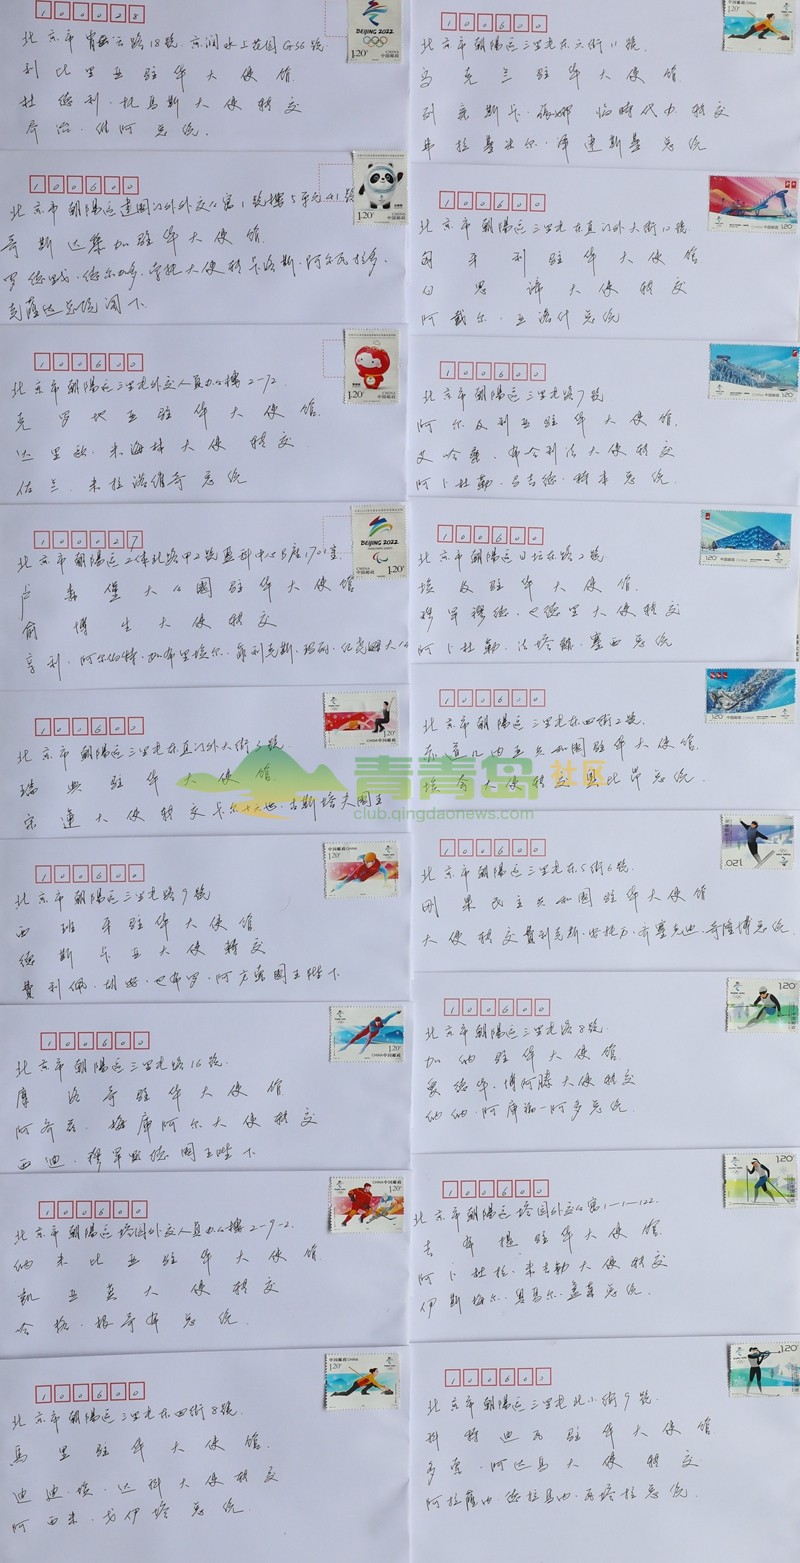 100028
北京市朝陽区霄云路18號 京润水上花园G56號
利比里亚驻华大使馆
杜德利·托马斯大使转交
乔治·维阿总统
BEIJING 2022
1.20
100600
北京市朝陽区建國门外外交公寓1號樓5单元41號
哥斯达黎加驻华大使馆
大使转卡洛斯·阿尔瓦拉多·
克薩达总统阁下
1.20
100600
北京市朝陽区三里屯外交人員办公樓2-72
克罗地亚驻华大使馆
达里欧·米海林大使转交
佐兰·米拉诺維奇总统
1.20
100027
北京市朝陽区工体北路甲2號盈科中心B座1701室
卢森堡大公國驻华大使馆
俞博生大使转交
亨利·阿尔伯特·加布里埃尔·菲利克斯·玛丽·纪尧姆大公
BEIJING 2022
1.20
100600
北京市朝陽区三里屯东直门外大街3號
瑞典驻华大使馆
宋莲大使转交卡尔十六世·古斯塔夫國王
1.20
100600
北京市朝陽区三里屯路9號
西班牙驻华大使馆
德斯卡亚大使转交
費利佩·胡安·巴布罗·阿方索國王陛下
1.20
100600
北京市朝陽区三里屯路16號
摩洛哥驻华大使馆
阿齐兹·梅庫阿尔大使转交
西迪·穆罕默德國王陛下
1.20
100600
北京市朝陽区塔园外交人員办公樓2-9-2
纳米比亚驻华大使馆
凯亚莫大使转交
哈格·根哥布总统
1.20
100600
北京市朝陽区三里屯东四街8號
馬里驻华大使馆
迪迪埃·达科大使转交
阿西米·戈伊塔总统
1.20
100600
北京市朝陽区三里屯东六街11號
乌克兰驻华大使馆
临時代办转交
弗拉基米尔·泽連斯基总统
1.20
100600
北京市朝陽区三里屯东直门外大街10號
匈牙利驻华大使馆
白思諦大使转交
阿戴尔·亚諾什总统
1.20
100600
北京市朝陽区三里屯路7號
阿尔及利亚驻华大使馆
艾哈桑·布哈利法大使转交
阿卜杜勒·马吉德·特本总统
1.20
100600
北京市朝陽区日坛东路2號
埃及驻华大使馆
穆罕穆德·巴德里大使转交
阿卜杜勒·法塔赫·塞西总统
1.20
100600
北京市朝陽区三里屯东四街2號
赤道几内亚共和國驻华大使馆
埃查大使转交奥比昂总统
1.20
100600
北京市朝陽区三里屯东5街6號
刚果民主共和國驻华大使馆
大使转交費利克斯·安托万·齐塞克迪·奇隆博总统
1.20
100600
北京市朝陽区三里屯路8號
加纳驻华大使馆
爱德华·博阿滕大使转交
纳纳·阿庫福-阿多总统
1.20
100600
北京市朝陽区塔园外交公寓1-1-122
吉布提驻华大使馆
阿卜杜拉·米吉勒大使转交
伊斯梅尔·奥馬尔·盖莱总统
1.20
100600
北京市朝陽区三里屯北小街9號
科特迪瓦驻华大使馆
多索·阿达马大使转交
阿拉薩内·德拉馬内·瓦塔拉总统
1.20
青青岛社区
club.qingdaonews.com